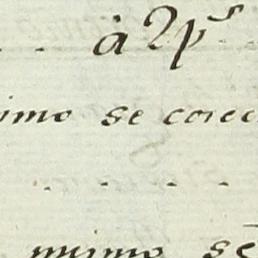 à 2ps
imo se corec
mimo se